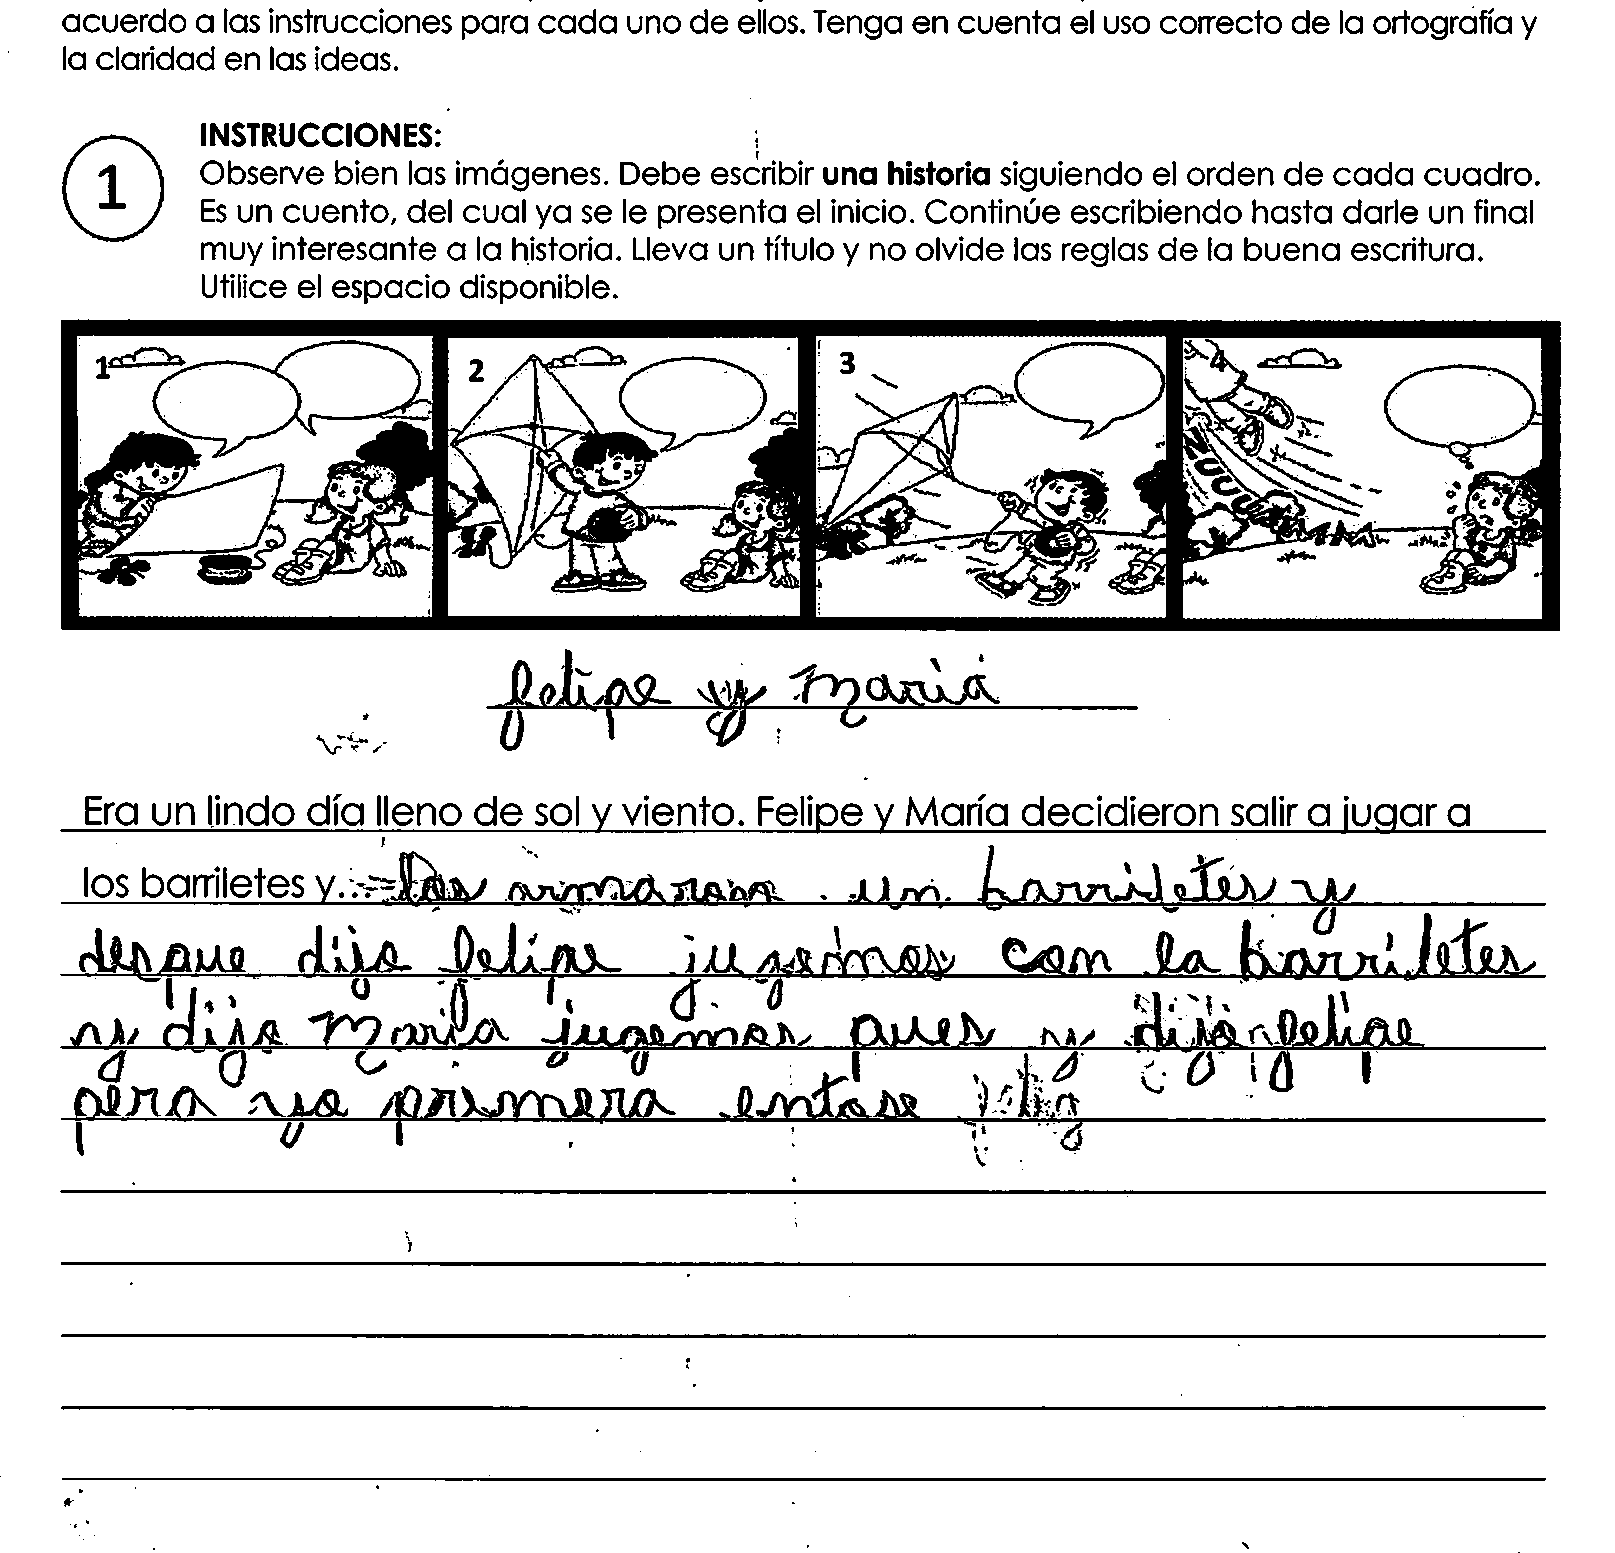 acuerdo a las instrucciones para cada uno de ellos. Tenga en cuenta el uso correcto de la ortografía y
la claridad en las ideas.
INSTRUCCIONES:
1
Observe bien las imágenes. Debe escribir una historia siguiendo el orden de cada cuadro.
Es un cuento, del cual ya se le presenta el inicio. Continúe escribiendo hasta darle un final
muy interesante a la historia. Lleva un título y no olvide las reglas de la buena escritura.
Utilice el espacio disponible.
1 2 3 4
felipe y maria
Era un lindo día lleno de sol y viento. Felipe y María decidieron salir a jugar a
los barriletes y... los armaron un barriletes y
desque dijo felipe jugemos con la barriletes
y dijo Maria jugemos pues y dijo felipe
pero yo primero entose